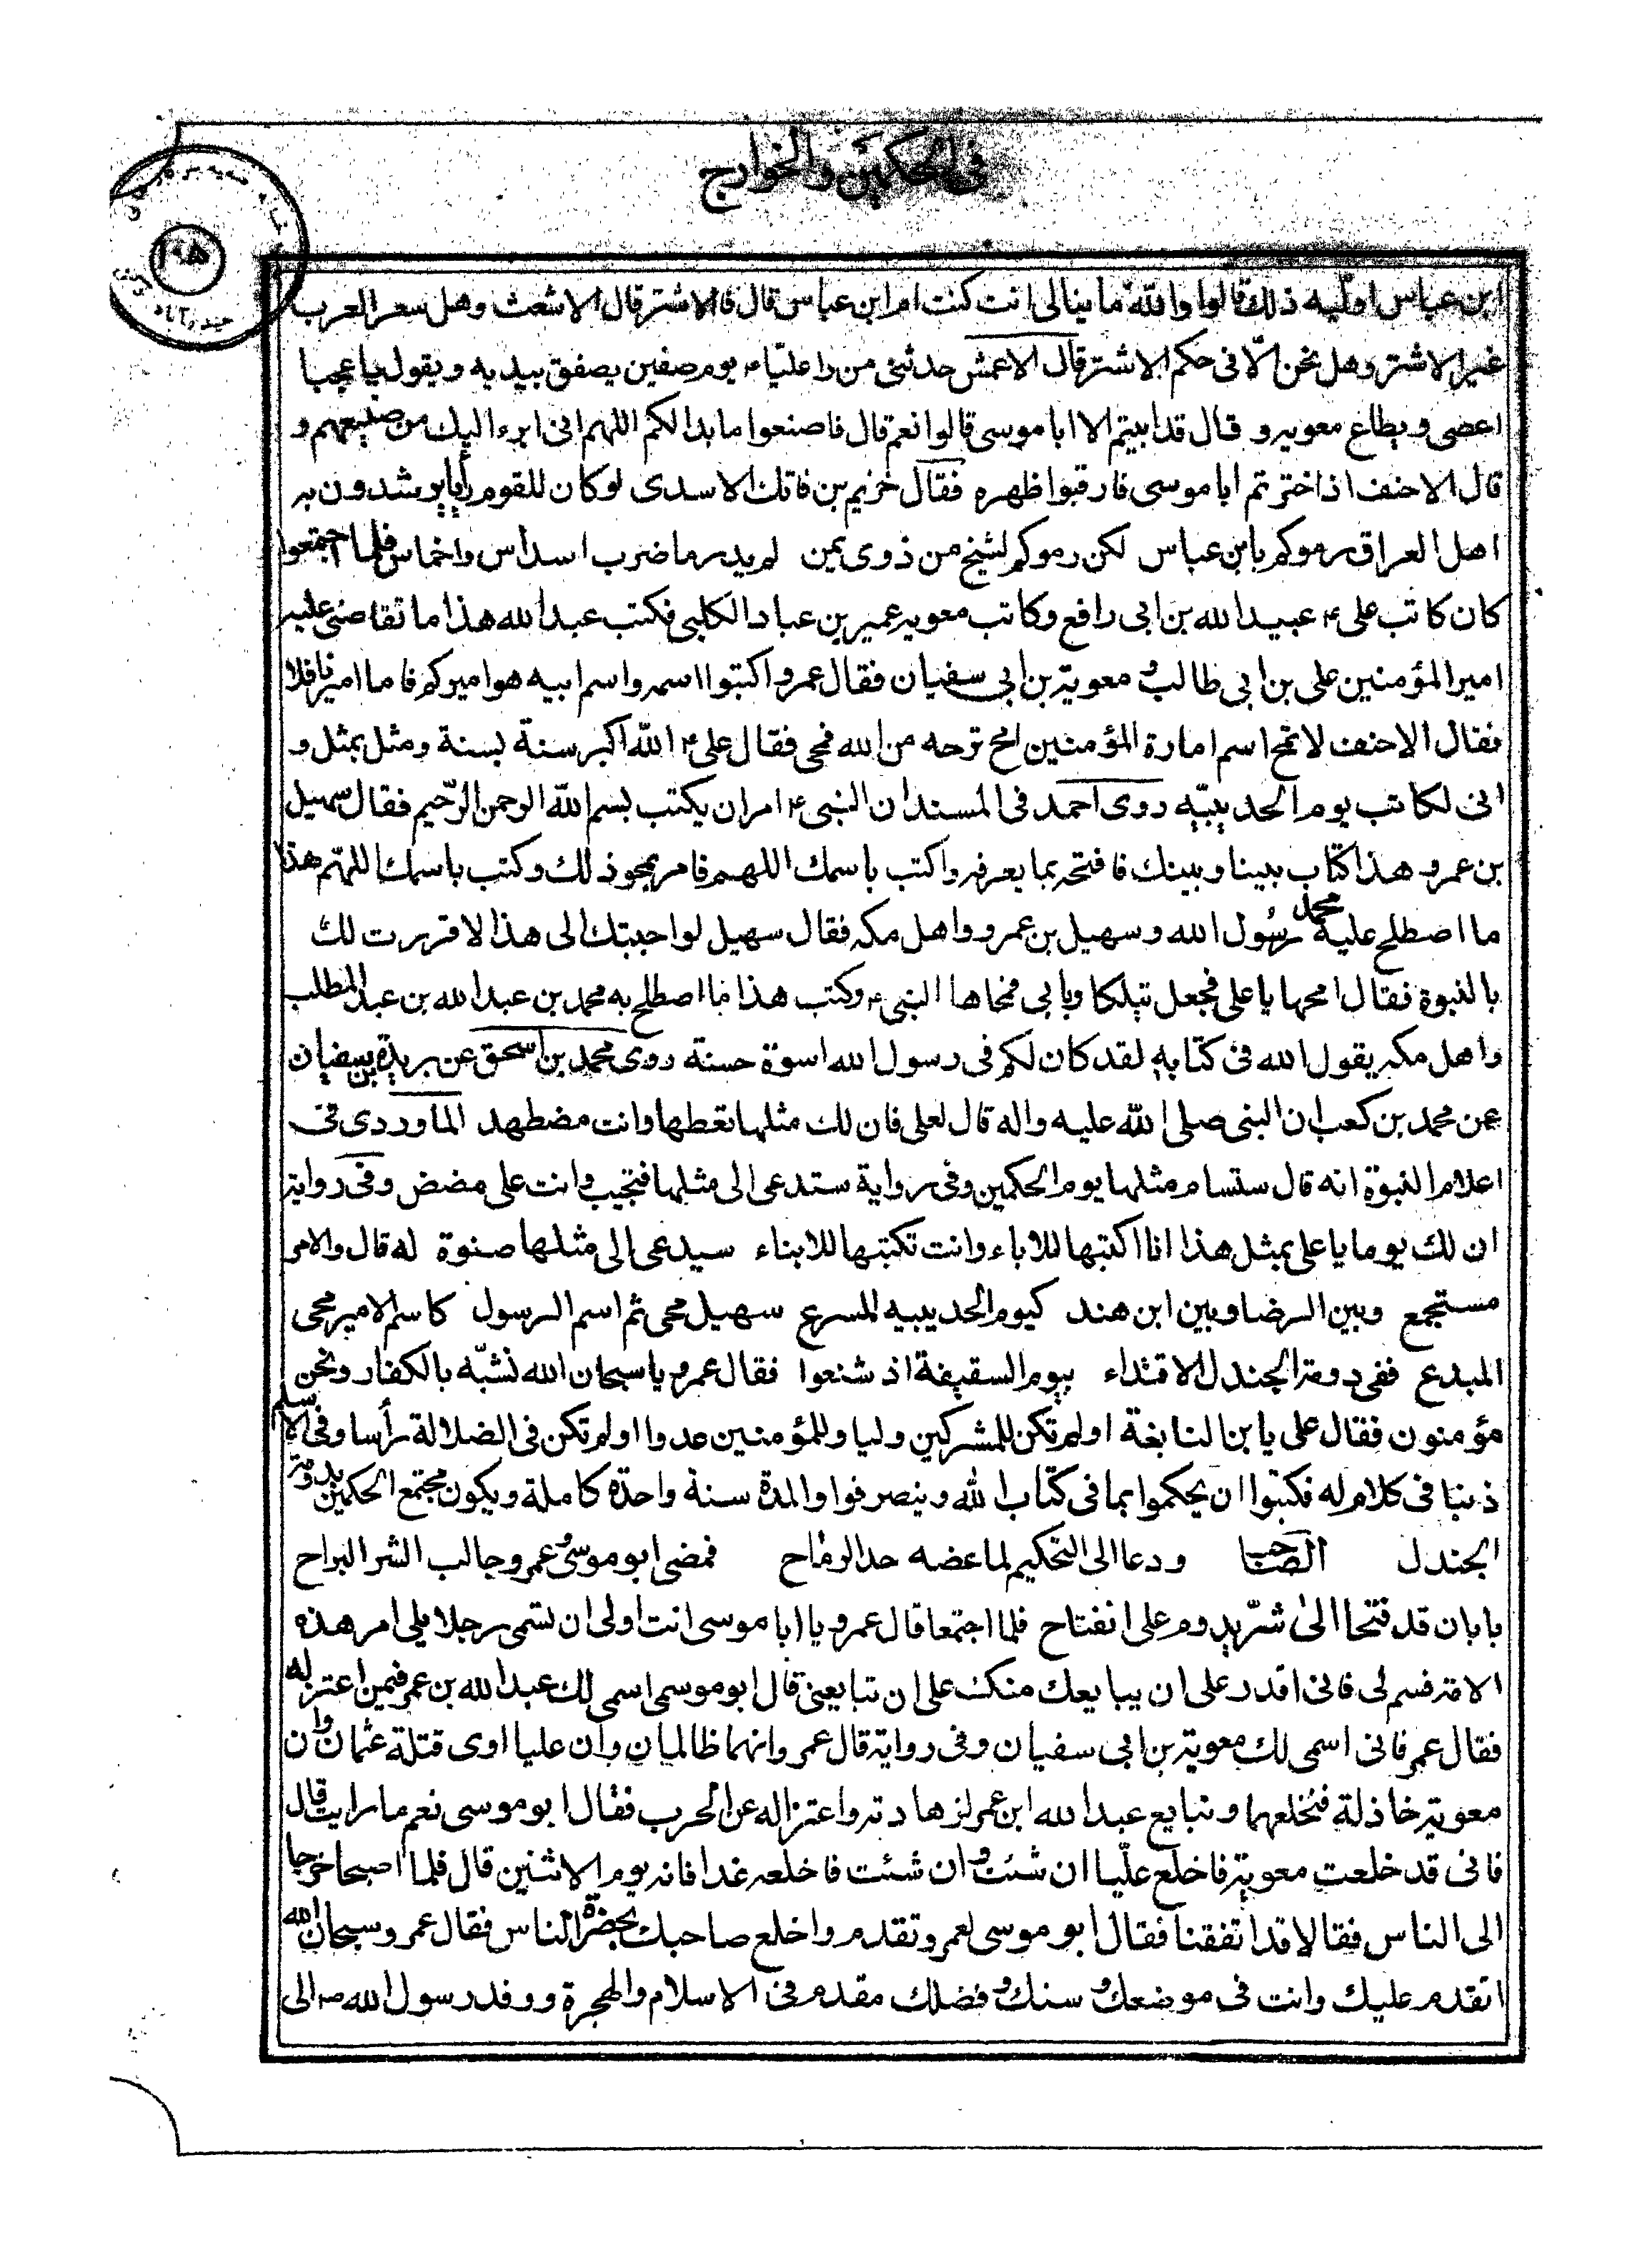 فى الحكمين والخوارج
ابن عباس اوليه ذلك قالوا والله ما يبالى انت كنت ام ابن عباس قال فالاشتر قال الاشعث وهل سعر العرب
غير الاشتر وهل نحن الّا فى حكم الاشتر قال الاعمش حدثنى من راى عليّاء يوم صفين يصفق بيديه ويقول يا عجبا
اعصى ويطاع معويه و قال قد ابيتم الا ابا موسى قالوا نعم قال فاصنعوا ما بدالكم اللهم انى ابرء اليك من صنيعهم و
قال الاحنف اذا اخترتم ابا موسى فارقبوا ظهره فقال خزيم بن فاتك الاسدى لو كان للقوم رأى يرشدون به
اهل العراق رموكم بابن عباس لكن رموكم لشيخ من ذوى يمن لم يدر ما ضرب اسداس واخماس فلما اجتمعوا
كان كاتب على ء عبيد الله بن ابى رافع وكاتب معويه عمير بن عباد الكلبى فكتب عبد الله هذا ما تقاضى عليه
امير المؤمنين على بن ابى طالب و معوية بن ابى سفيان فقال عمرو اكتبوا اسمه واسم ابيه هو اميركم فاما اميرنا فلا
فقال الاحنف لا تمح اسم امارة المؤمنين امح ترحه من الله فمحى فقال على ء الله اكبر سنة بسنة ومثل بمثل و
انى لكاتب يوم الحديبيّه روى احمد فى المسند ان النبى ء امر ان يكتب بسم الله الرحمن الرّحيم فقال سهيل
بن عمرو هذا كتاب بيننا وبينك فافتحه بما يعرفه واكتب باسمك اللهم فامر بمحو ذلك وكتب باسمك اللهّم هذا
ما اصطلح عليه محمد رسول الله وسهيل بن عمرو واهل مكه فقال سهيل لو اجبتك الى هذا لاقررت لك
بالنبوة فقال امحها يا على فجعل يتلكا ويابى فمحاها النبى ء وكتب هذا ما اصطلح به محمد بن عبد الله بن عبد المطلب
واهل مكه يقول الله فى كتابه لقد كان لكم فى رسول الله اسوة حسنة روى محمد بن اسحق عن بريدة بن سفيان
عن محمد بن كعب ان النبى صلى الله عليه واله قال لعلى فان لك مثلها تعطها وانت مضطهد الماوردى فى
اعلام النبوة انه قال ستسام مثلها يوم الحكمين وفى رواية ستدعى الى مثلها فتجيب وانت على مضض وفى رواية
ان لك يوما يا على بمثل هذا انا اكتبها للاباء وانت تكتبها للابناء سيدعى الى مثلها صنوة له قال والامر
مستجمع وبين الرضا وبين ابن هند كيوم الحديبيه المسرع سهيل محى ثم اسم الرسول كاسم الامير محى
المبدع ففى دومة الجندل الاقتداء بيوم السقيفة اذ شنعوا فقال عمرو يا سبحان الله نشبّه بالكفار ونحن
مؤمنون فقال على يا بن النابغة اولم تكن للمشركين وليا وللمؤمنين عدوا اولم تكن فى الضلالة رأسا وفى الاسلم
ذنبا فى كلام له فكتبوا ان يحكموا بما فى كتاب الله وينصرفوا والمدة سنة واحدة كاملة ويكون مجتمع الحكمين بدومة
الجندل الصاحب ودعا الى التحكيم لما عضه حد الرماح فمضى ابو موسى و عمرو جالب الشر البراح
بابان قد فتحا الى شرّ يدوم على انفتاح فلما اجتمعا قال عمرو يا ابا موسى انت اولى ان تسمى رجلا يلى امر هذه
الامة فسم لى فانى اقدر على ان يبايعك منك على ان تبايعنى قال ابو موسى اسمى لك عبد الله بن عمر فيمن اعتزله
فقال عمر فانى اسمى لك معوية بن ابى سفيان وفى رواية قال عمر وانهما ظالمان وان عليا اوى قتلة عثمان وان
معوية خاذلة فنخلعهما ونبايع عبد الله ابن عمر لزهادته واعتزاله عن الحرب فقال ابو موسى نعم ما رايت قال
فانى قد خلعت معوية فاخلع عليّا ان شئت و ان شئت فاخلعه غدا فانه يوم الاثنين قال فلما اصبحا خرجا
الى الناس فقالا قد اتفقنا فقال ابو موسى لعمرو تقدم واخلع صاحبك بحضرة الناس فقال عمرو سبحان الله
اتقدم عليك وانت فى موضعك و سنك و فضلك مقدم فى الاسلام والهجرة ووفد رسول الله ص الى